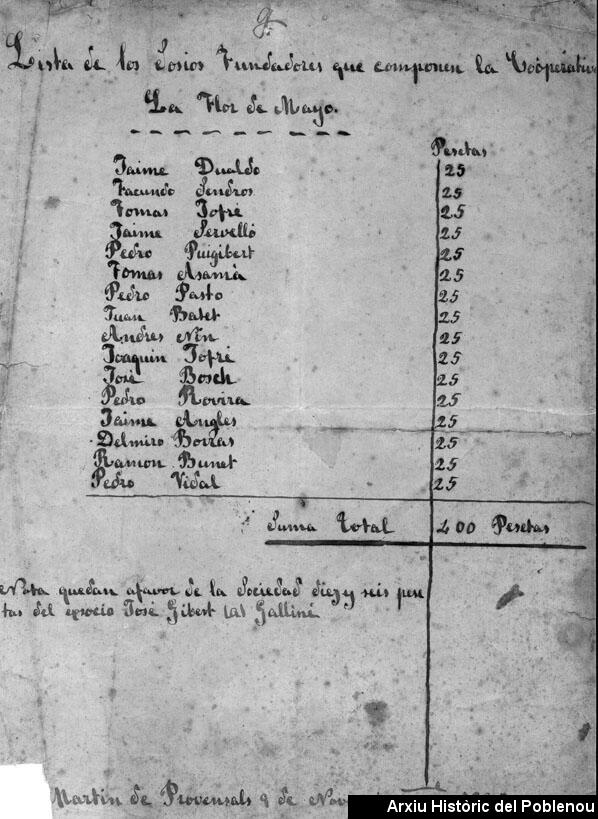 9.
Lista de los Sosios Fundadores que componen la Cooperativa
La Flor de Mayo.
Pesetas
Jaime Dualdo 25
Facundo Sendros 25
Tomas Jofré 25
Jaime Servelló 25
Pedro Puigibert 25
Tomas Asamà 25
Pedro Pasto 25
Juan Batet 25
Andres Nin 25
Joaquin Jofré 25
José Bosch 25
Pedro Rovira 25
Jaime Angles 25
Delmiro Borras 25
Ramon Bunet 25
Pedro Vidal 25
Suma Total 400 Pesetas
Nota quedan afavor de la Sociedad diez y seis pese
tas del exsocio José Gibert (a) Galliné
Martin de Provensals 9 de Nov
Arxiu Històric del Poblenou